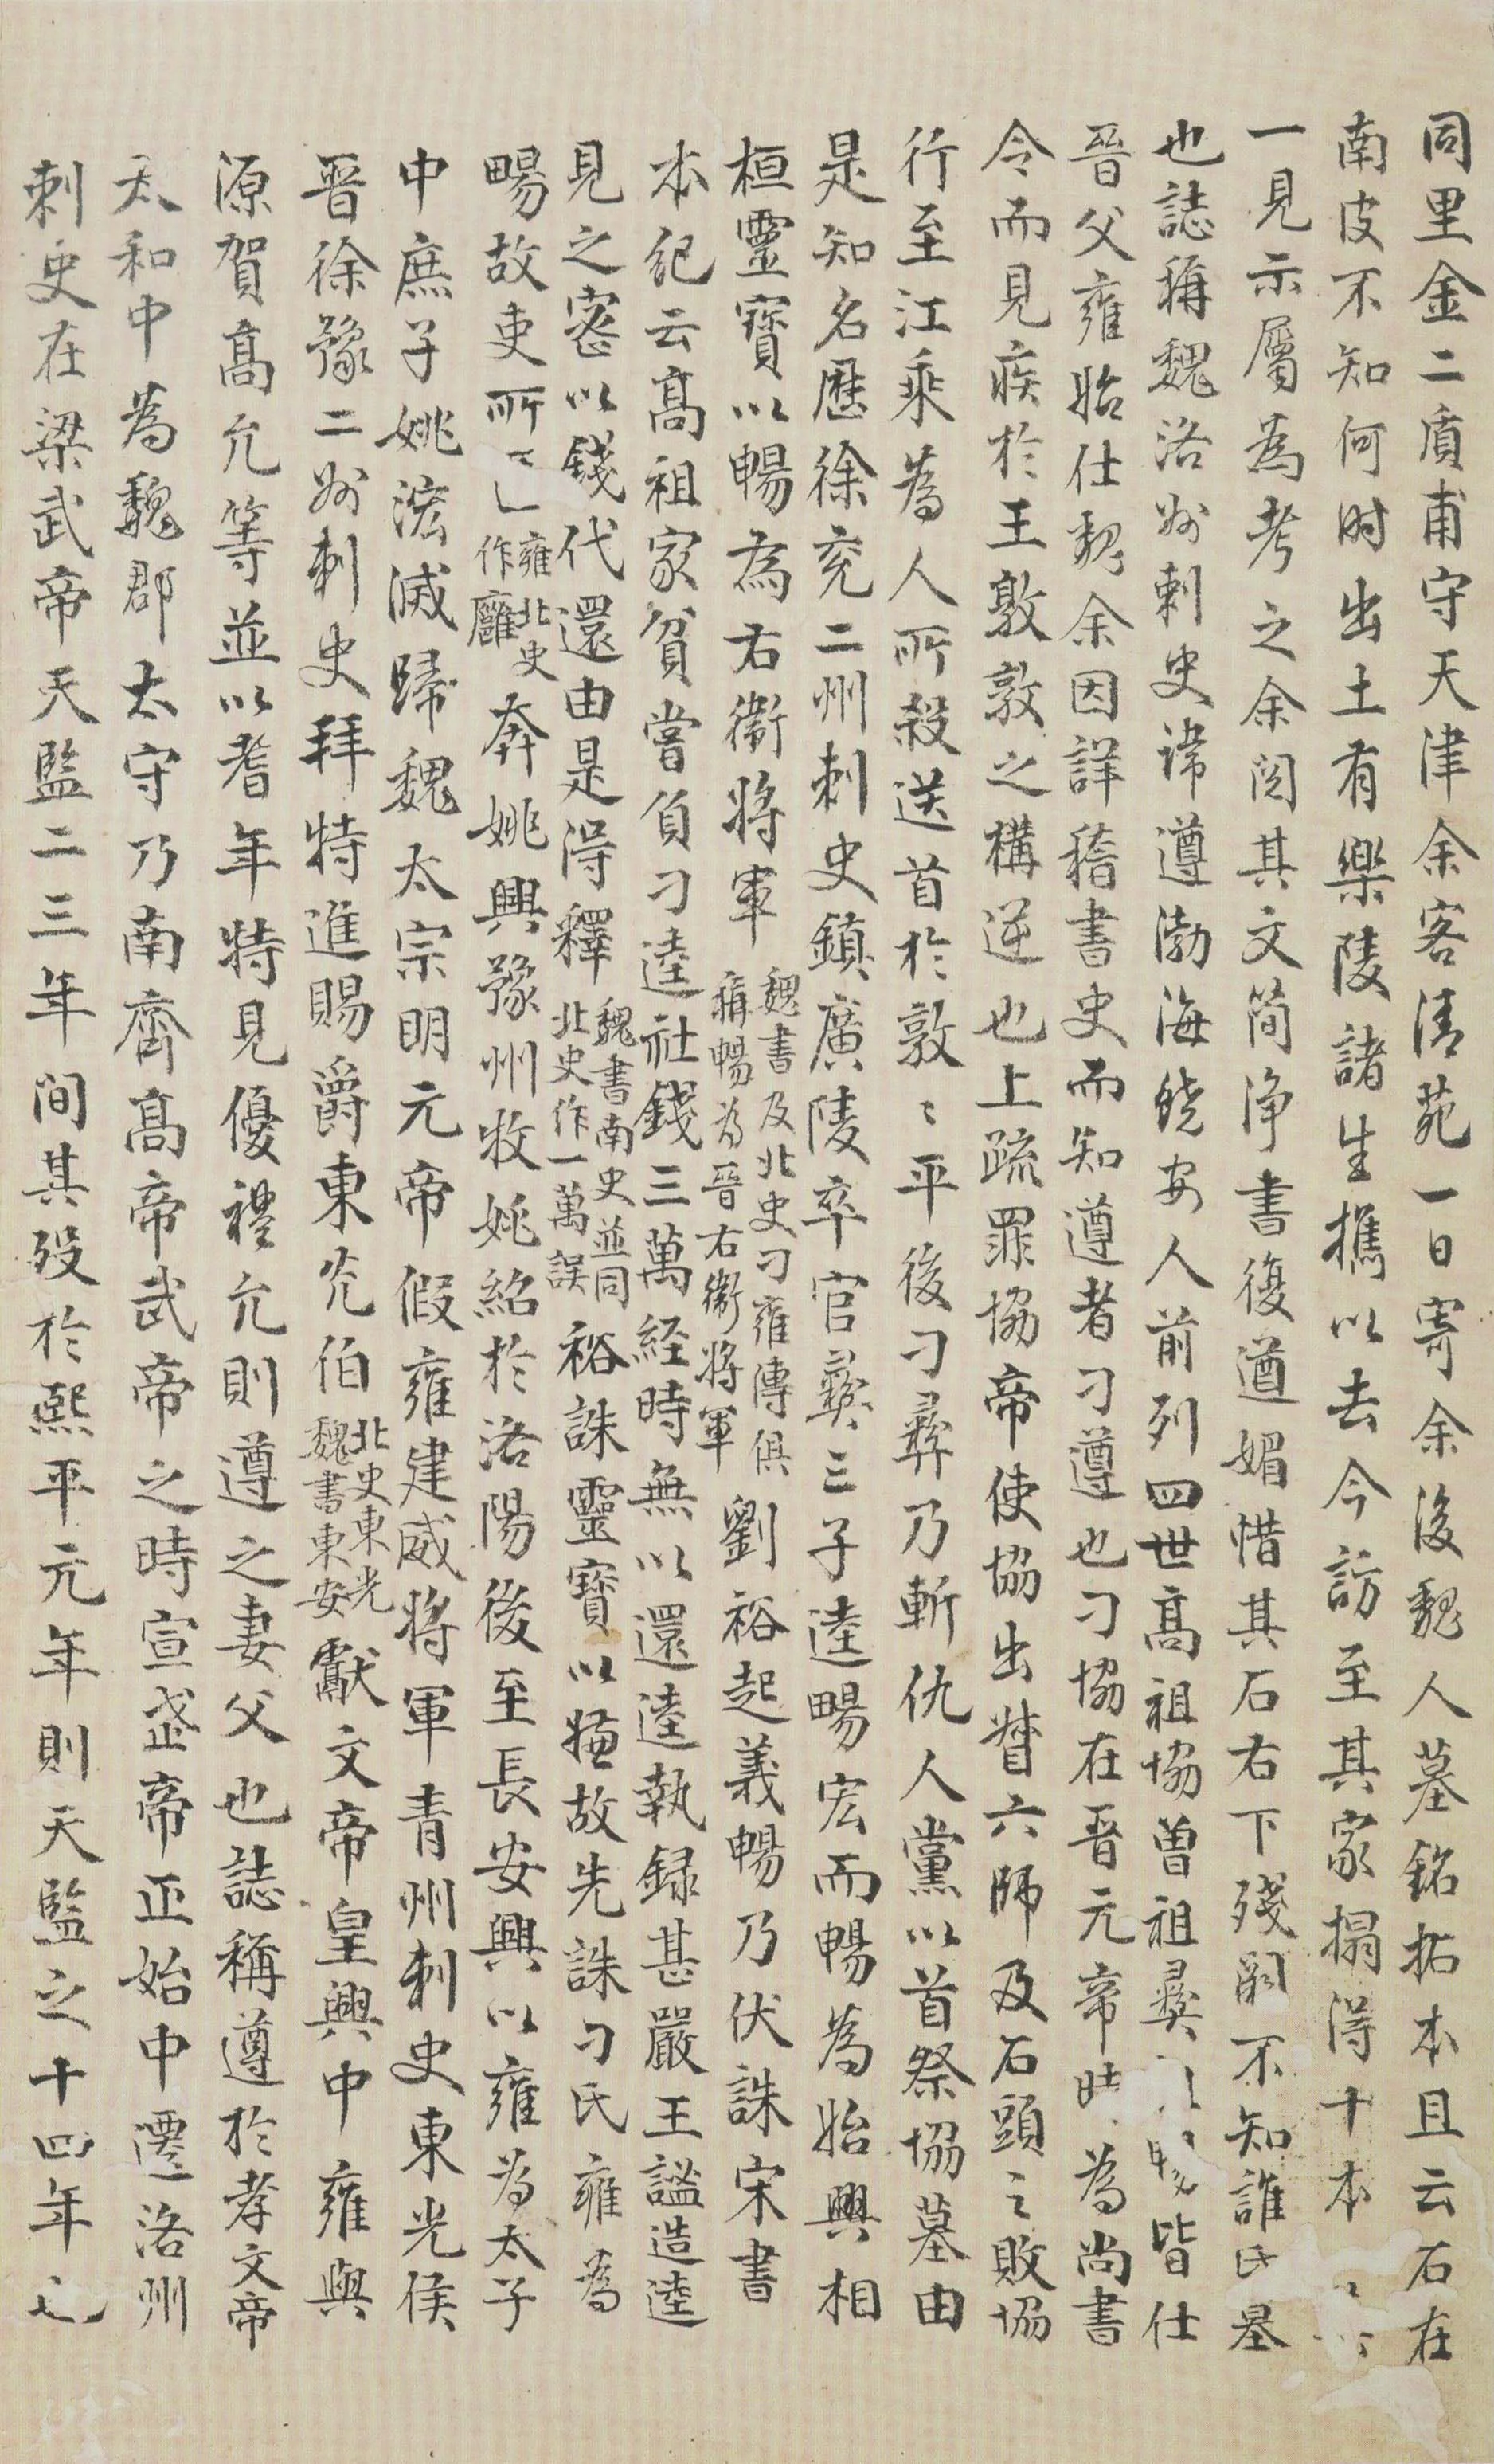 同里金二質甫守天津余客清苑一日寄余後魏人墓銘拓本且云石在
南皮不知何时出土有樂陵諸生攜以去今訪至其家搨得十本
一見示屬為考之余閲其文簡淨書復遒媚惜其石右下殘闕不知誰氏墓
也誌稱魏洛州刺史諱遵渤海饒安人前列四世高祖協曾祖彝暢皆仕
晉父雍始仕魏余因詳稽書史而知遵者刁遵也刁協在晉元帝時為尚書
令而見疾於王敦敦之構逆也上疏罪協帝使協出督六師及石頭之敗協
行至江乘為人所殺送首於敦〻平後刁彝乃斬仇人黨以首祭協墓由
是知名歷徐兖二州刺史鎮廣陵卒官彝三子逵暢宏而暢為始興相
桓靈寶以暢為右衛將軍魏書及北史刁雍傳俱稱暢為晉右衛將軍劉裕起義暢乃伏誅宋書
本紀云高祖家貧嘗負刁逵社錢三萬經時無以還逵執録甚嚴王謐造逵
見之密以錢代還由是得釋魏書南史並同北史作一萬誤裕誅靈寶以嫌故先誅刁氏雍為
暢故吏所匿雍北史作廱奔姚興豫州牧姚紹於洛陽後至長安興以雍為太子
中庶子姚泓滅歸魏太宗明元帝假雍建威將軍青州刺史東光侯
晉徐豫二州刺史拜特進賜爵東光伯北史東光魏書東安獻文帝皇興中雍與
源賀高允等並以耆年特見優禮允則遵之妻父也誌稱遵於孝文帝
太和中為魏郡太守乃南齊高帝武帝之時宣武帝正始中遷洛州
刺史在梁武帝天監二三年間其殁於熙平元年則天監之十四年也